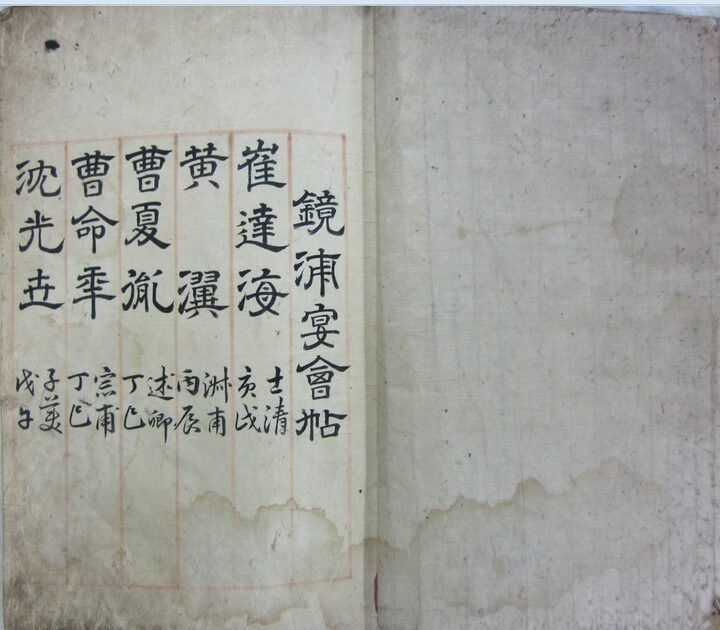 鏡浦宴會帖
崔達海 士清 庚戌
黃瀷 甫 丙辰
曹夏胤 述卿 丁巳
曹命 宗甫 丁巳
沈光世 子美 戊午